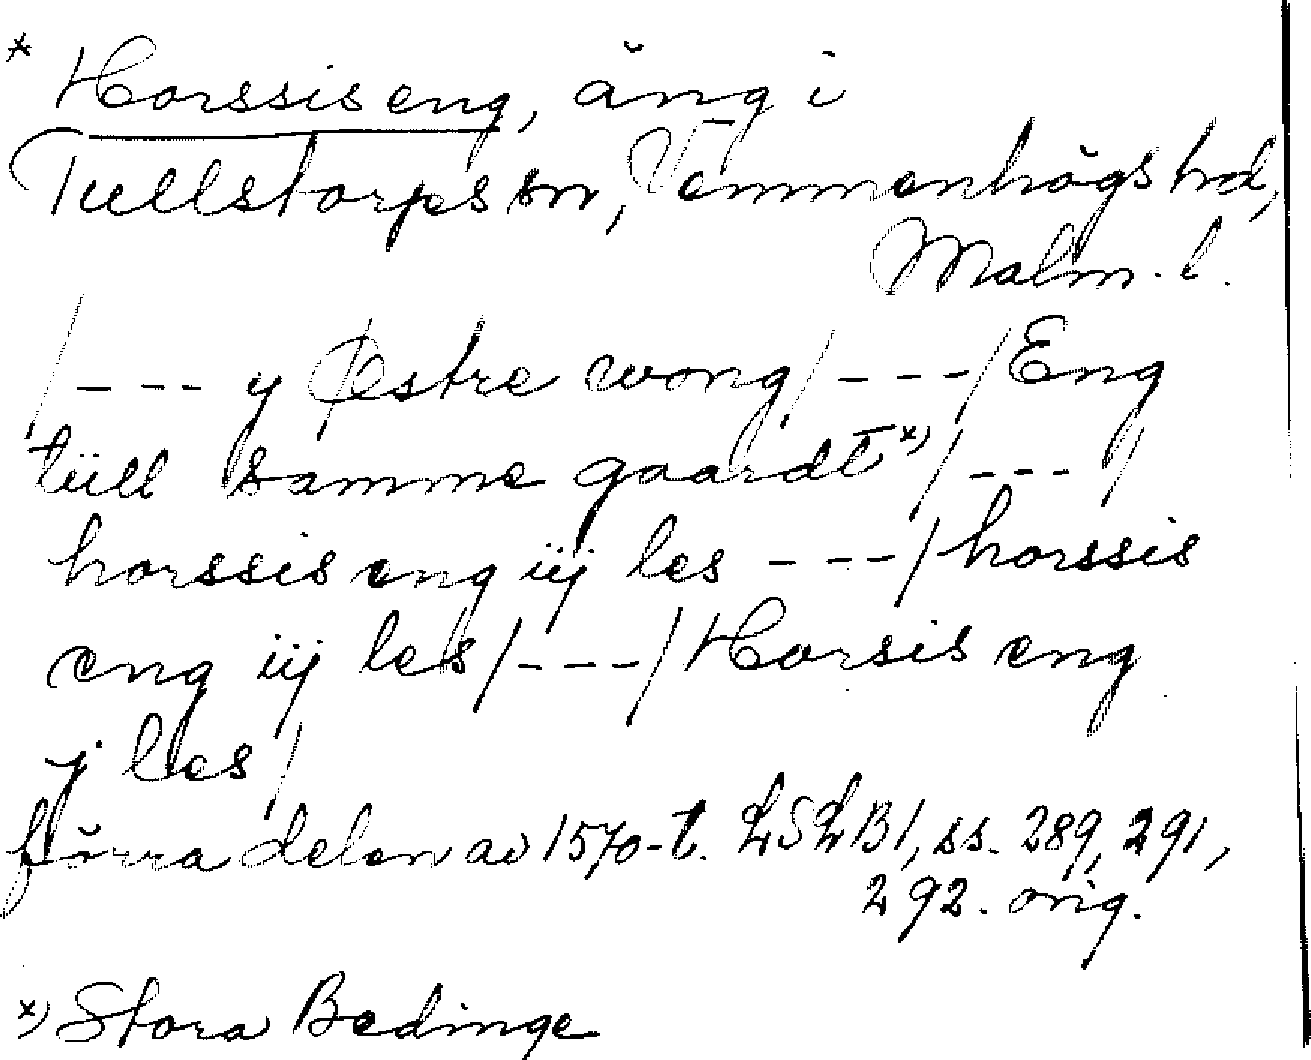 * Horssis eng, äng i
Tullstorps sn, Vemmenhögs hd,
Malm. l.
/--- y Østre wong/---/Eng
tüll samme gaardt x)/---/
horssis eng iij les ---/horssis
eng iij les/---/Horsis eng
j les/
förra delen av 1570-t. LSLB1, ss. 289, 291,
292. orig.
x) Stora Bedinge